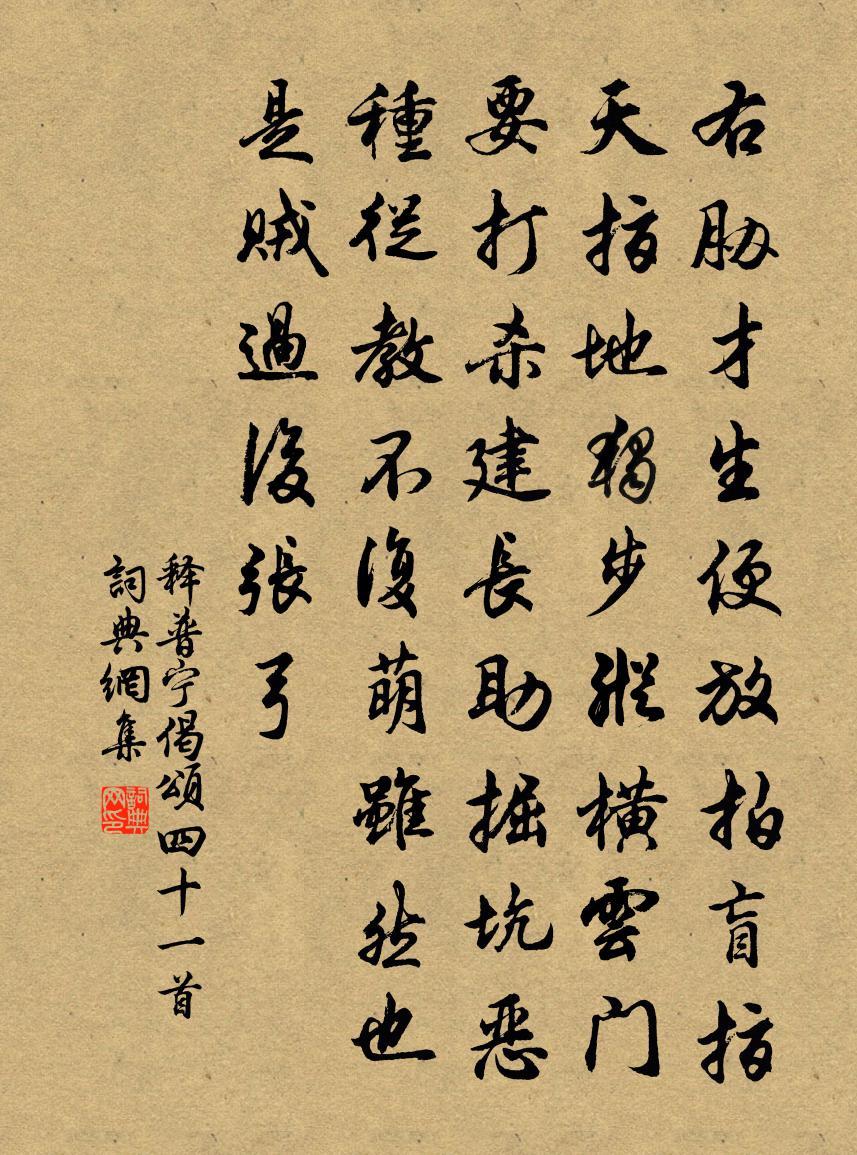 右胁才生便放拍盲指
天指地獨步縱橫雲门
要打杀建長助掘坑恶
種從教不復萌雖然也
是贼過後張弓
释普宁偈頌四十一首
詞典網集
詞典网印